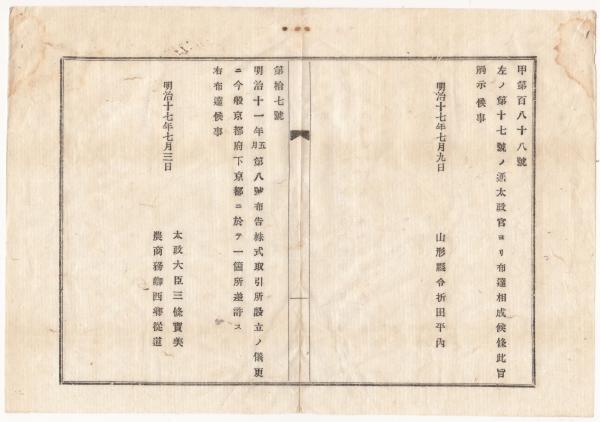 甲第百八十八號
左ノ第十七號ノ通太政官ヨリ布達相成候條此旨
揭示候事
明治十七年七月九日
山形縣令折田平內
第拾七號
明治十一年五月第八號布告株式取引所設立ノ儀更
ニ今般京都府下京都ニ於テ一箇所差許ス
右布達候事
明治十七年七月三日
太政大臣三條實美
農商務卿西鄕從道